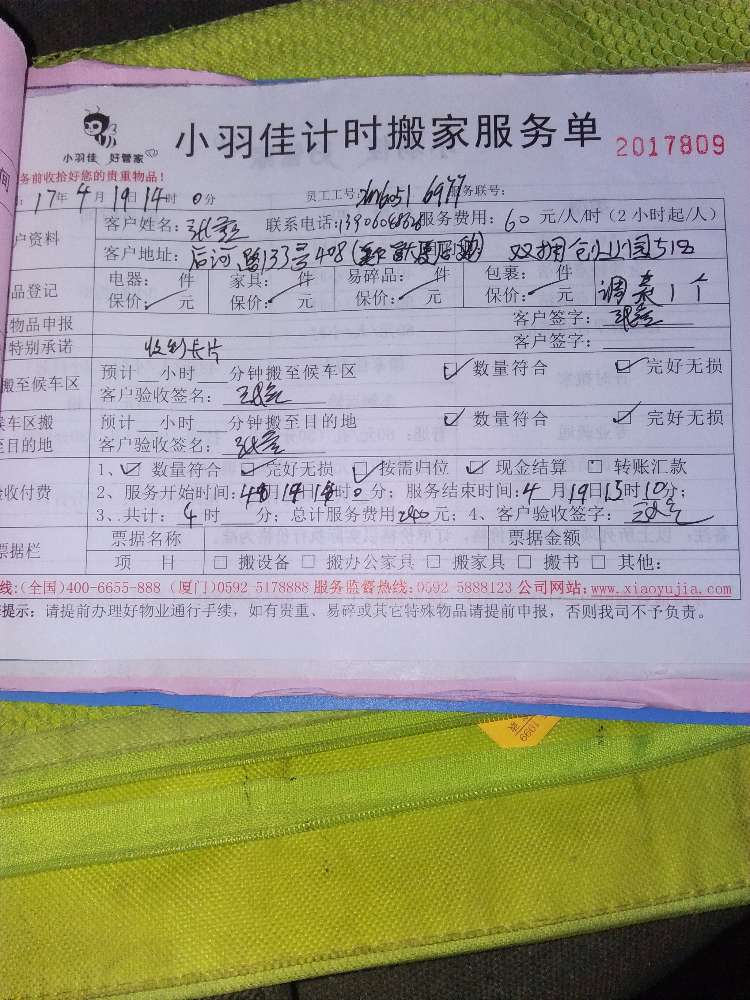 小羽佳计时搬家服务单 2017809
小羽佳 好管家
务前收拾好您的贵重物品！
17年4月19日14时0分 员工工号: 服务联号:
户资料 客户姓名: 联系电话: 服务费用: 60 元/人/时（2小时起/人）
客户地址: 后河路133号408
品登记 电器: 件 家具: 件 易碎品: 件 包裹: 件 调菜1个
保价: 元 保价: 元 保价: 元 保价: 元
物品申报 客户签字:
特别承诺 收到卡片 客户签字:
搬至候车区 预计 小时 分钟搬至候车区 ☑ 数量符合 ☑ 完好无损
客户验收签名:
候车区搬 预计 小时 分钟搬至目的地 ☑ 数量符合 ☑ 完好无损
至目的地 客户验收签名:
1、☑ 数量符合 ☑ 完好无损 ☑ 按需归位 ☑ 现金结算 □ 转账汇款
验收付费 2、服务开始时间: 4月19日14时0分; 服务结束时间: 4月19日15时10分;
3、共计: 4 时 分; 总计服务费用 240 元; 4、客户验收签字:
票据栏 票据名称 票据金额
项 目 □ 搬设备 □ 搬办公家具 □ 搬家具 □ 搬书 □ 其他:
线:(全国)400-6655-888 (厦门)0592 5178888 服务监督热线:0592 5888123 公司网站:www.xiaoyujia.com
提示: 请提前办理好物业通行手续，如有贵重、易碎或其它特殊物品请提前申报，否则我司不予负责。